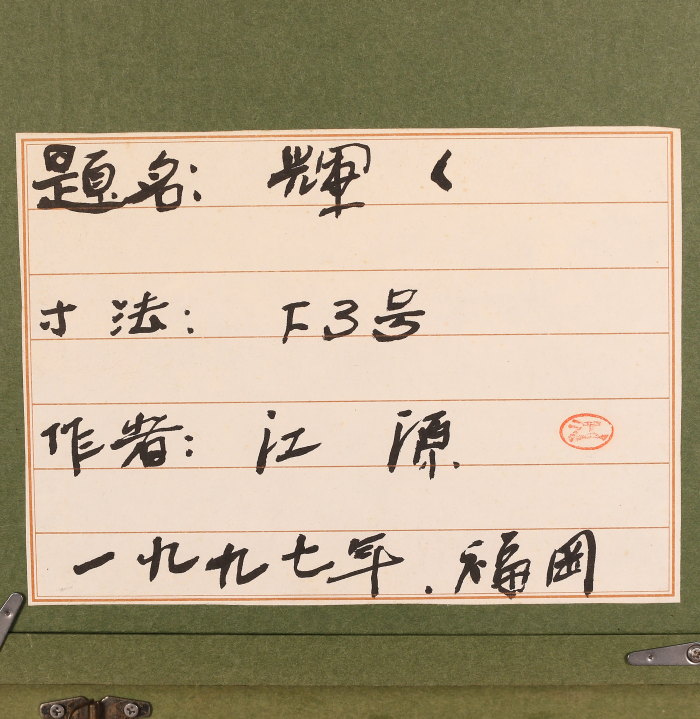 題名: 輝く
寸法: F3号
作者: 江 源 江
一九九七年.福岡